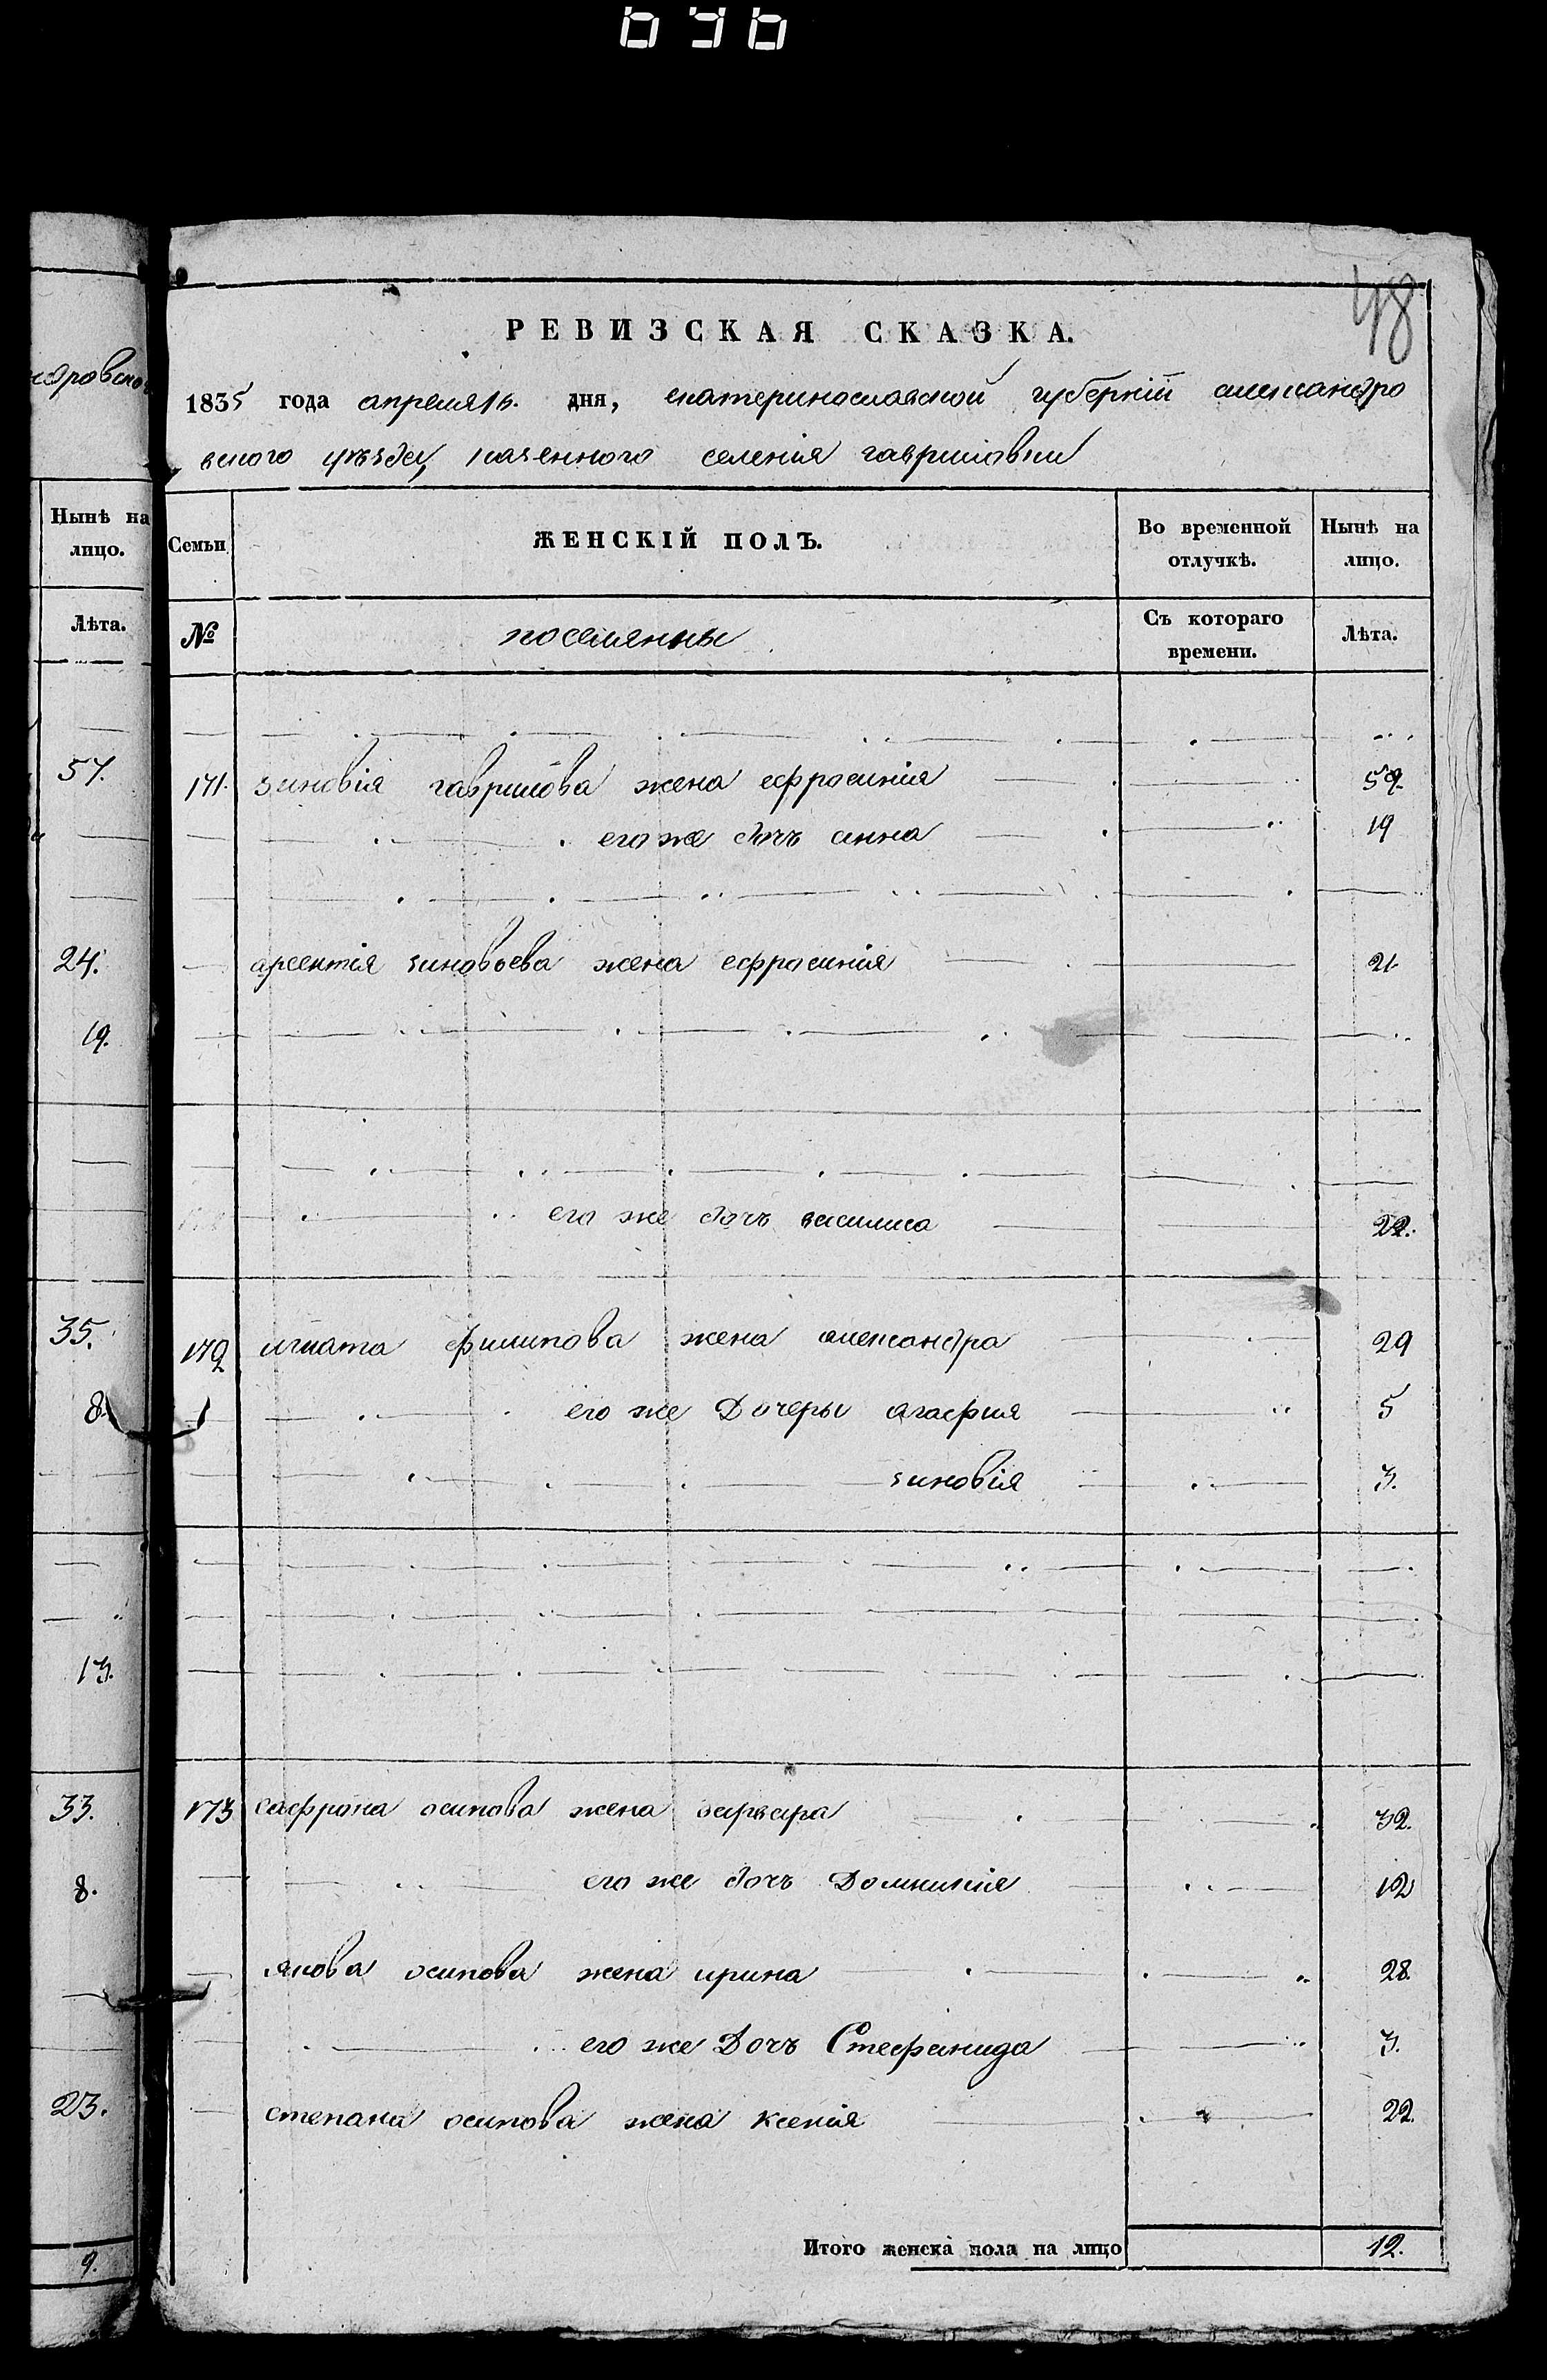 48
РЕВИЗСКАЯ СКАЗКА.
1835 года апреля 16. дня, екатеринославской губернiй александро
вского уѣзда, казенного селенiя гавриловки
ндровско
Нынѣ на лицо.
Лѣта.
57.
24.
19.
35.
8.
13.
33.
8.
23.
9.
Семьи ЖЕНСКIЙ ПОЛЪ. Во временной отлучкѣ. Нынѣ на лицо.
№ поселянны Съ котораго времени. Лѣта.
171. зиновiя гаврилова жена ефросинiя 59.
его же дочъ анна 19
арсентiя зиновьева жена ефросинiя 21.
его же дочъ василиса 22.
172 игната филипова жена александра 29
его же Дочеры агафия 5
зиновiя 3.
173 сафрона осипова жена варвара 32.
его же дочъ Домникiя 12
якова осипова жена ирина 28.
его же Дочъ Стефанида 3.
степана осипова жена ксенiя 22.
Итого женска пола на лицо 12.